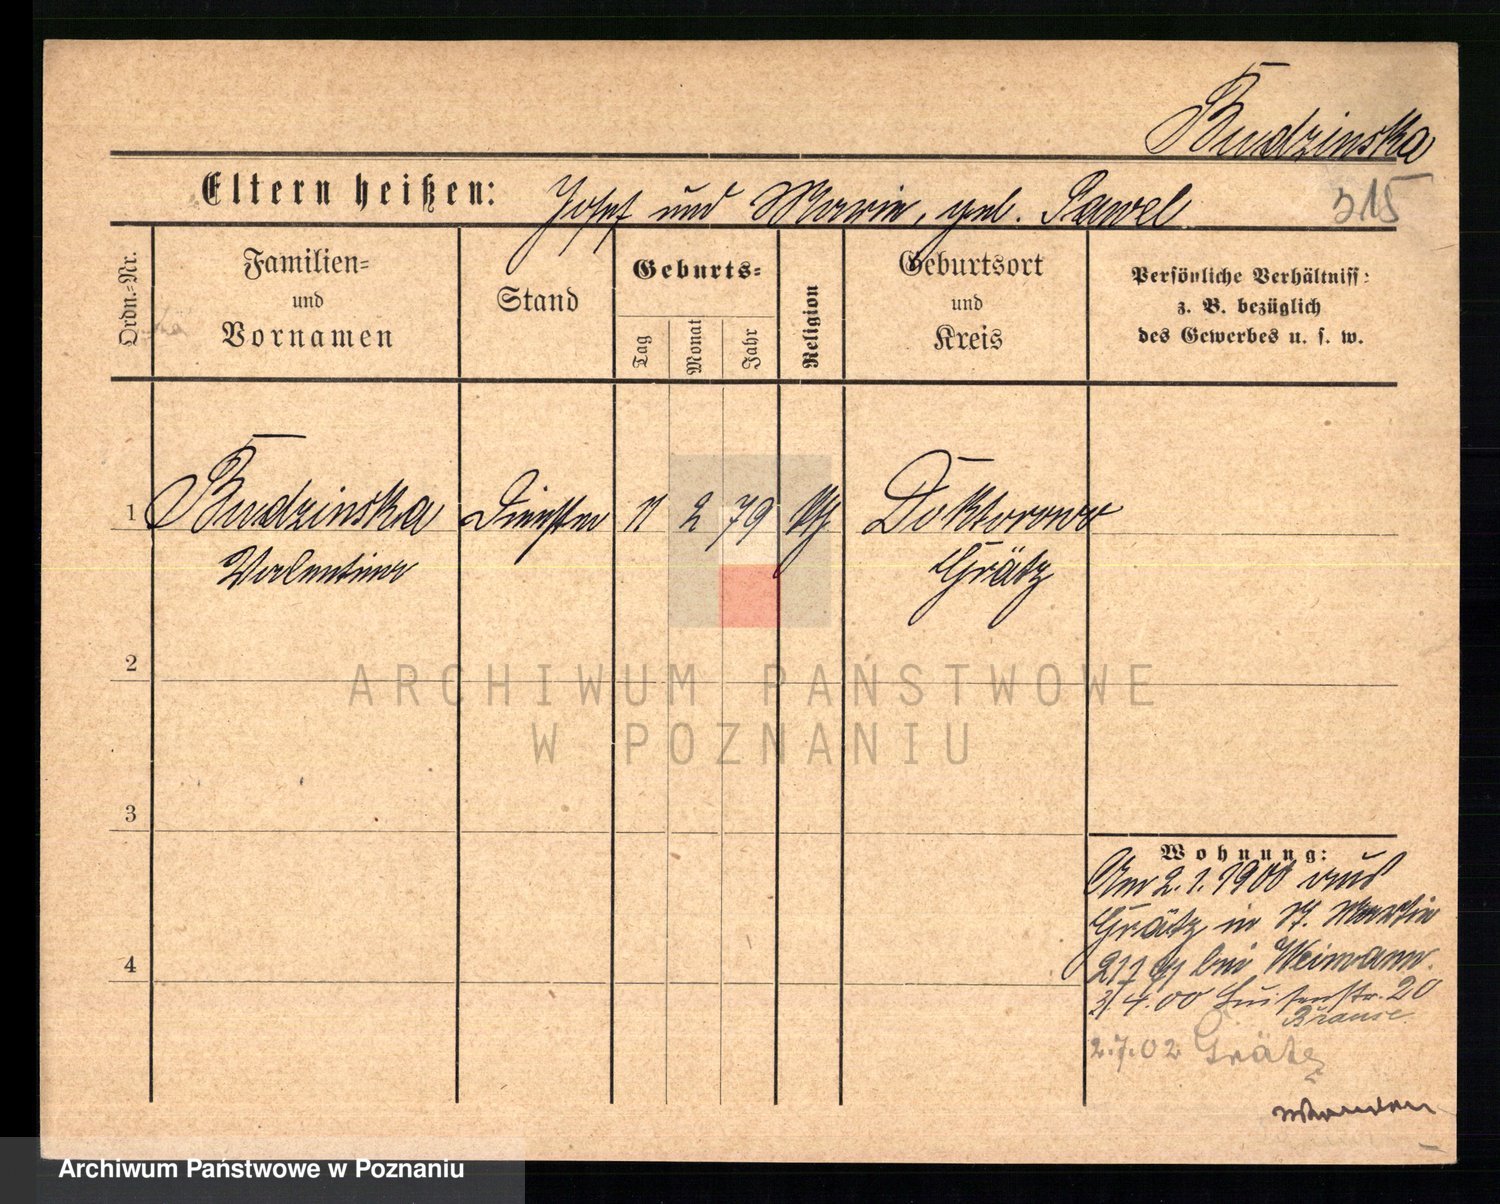 Budzinska
Eltern heißen: Josef und Marie, geb. Pawel
315
Ordn.-Nr.
Familien-
und
Vornamen
Stand
Geburts-
Tag
Monat
Jahr
Religion
Geburtsort
und
Kreis
Persönliche Verhältniss-
z. B. bezüglich
des Gewerbes u. s. w.
1 Budzinska 11 2 79 Doktorowo
Valentina Grätz
2
3
4
Wohnung:
Am 2.1.1900 aus
Grätz in St. Martin
bei Weimann.
3/4.00 Luisenstr. 20
Krause
2.7.02 Grätz
ARCHIWUM PAŃSTWOWE
W POZNANIU
Archiwum Państwowe w Poznaniu